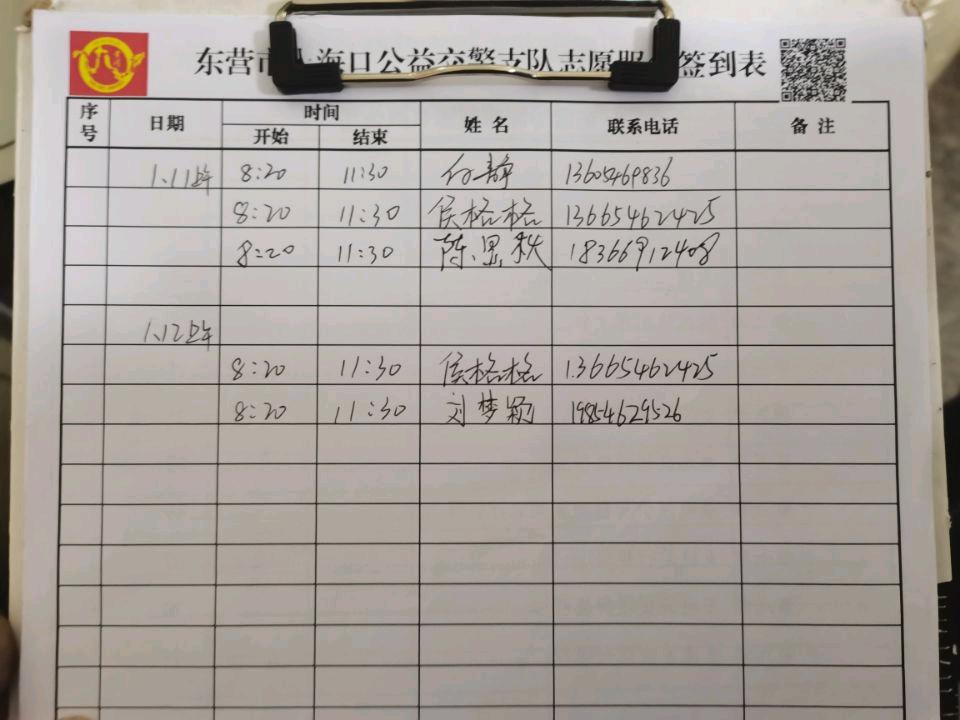 东营市 海口公益交警支队志愿服 签到表
序号 日期 时间 姓名 联系电话 备注
开始 结束
1.11上午 8:20 11:30 付静 13605469836
8:20 11:30 侯格格 13665462425
8:20 11:30 陈显秩 18366912408
1.12上午
8:20 11:30 侯格格 13665462425
8:20 11:30 刘梦颖 19854629526